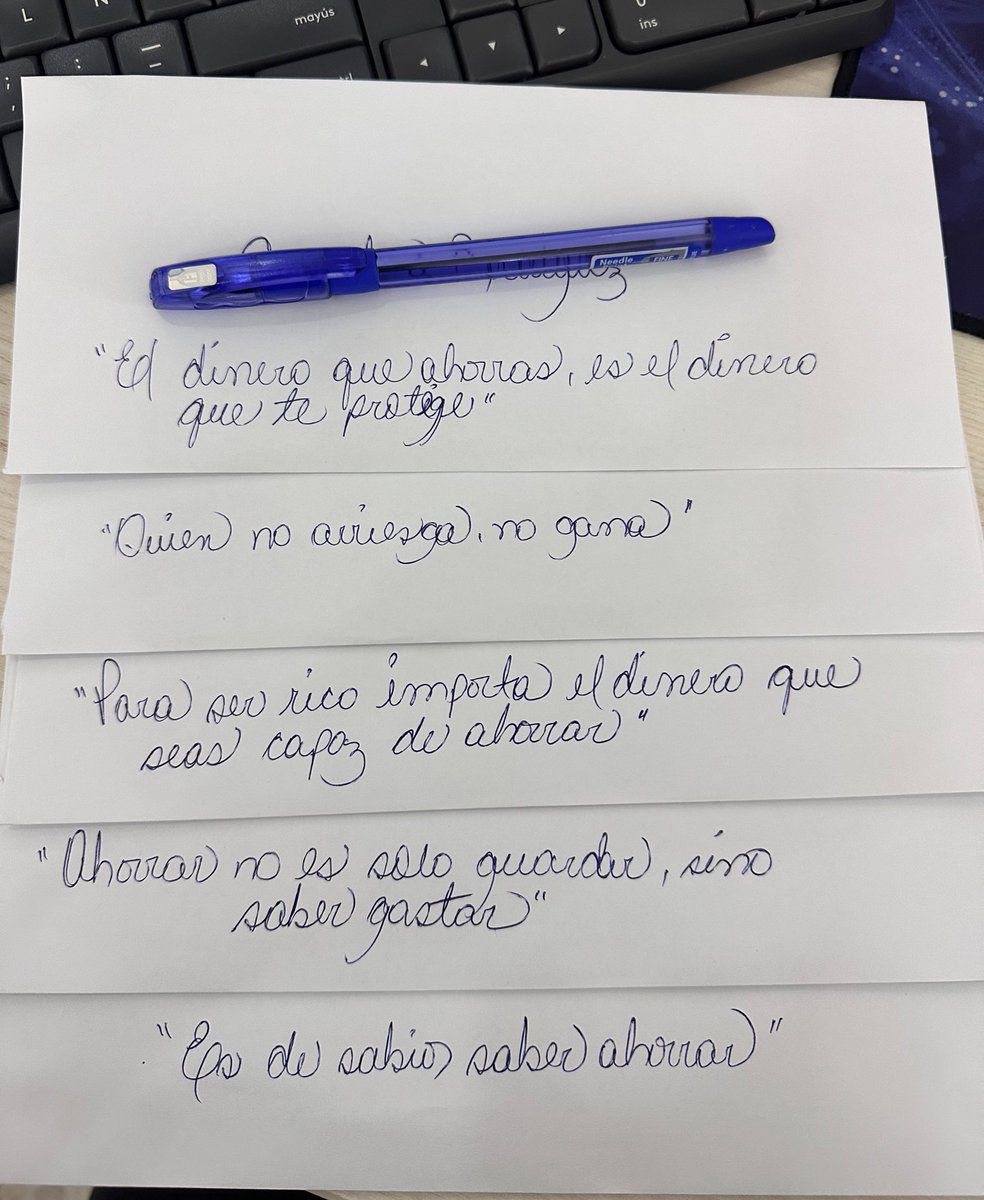 L
mayús
ins
Needle FINE
"El dinero que ahorras, es el dinero
que te protege"
"Quien no arriesga, no gana"
"Para ser rico importa el dinero que
seas capaz de ahorrar"
"Ahorrar no es solo guardar, sino
saber gastar"
"Es de sabios saber ahorrar"